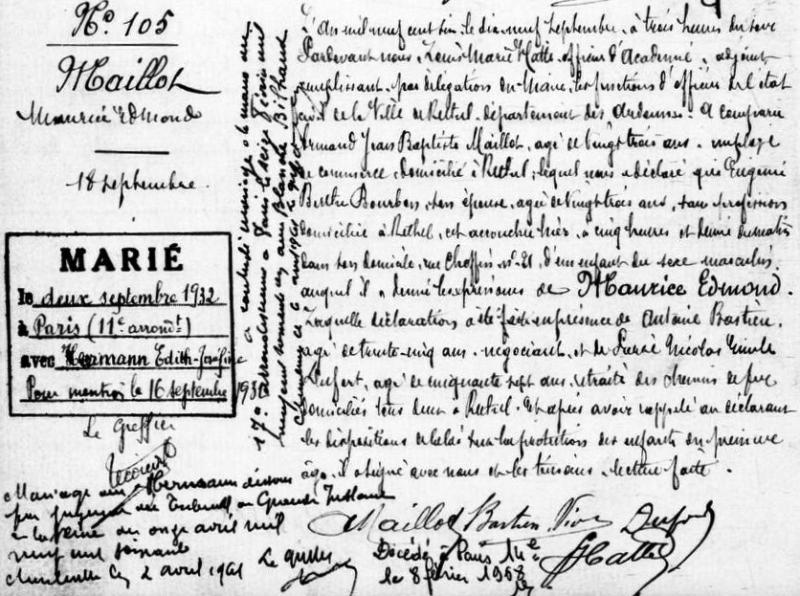 N° 105
Maillot
Maurice Edmond
18 septembre.
MARIÉ
le deux septembre 1932
à Paris (11e arrondt)
avec Hermann Edith-Joséfine
Pour mention le 16 septembre 193
Le Greffier
Mariage avec Hermann dissous
par jugement du Tribunal de Grande Instance
de la Seine du onze avril mil
neuf cent soixante
le 2 avril 1961
a contracté mariage à la mairie du
17e arrondissement à Paris le seize février mil
neuf cent soixante un avec Blanche
L'An mil neuf cent dix, le dix-neuf septembre, à trois heures du soir
Pardevant nous, Louis Marie Hatté, officier d'Académie, adjoint
remplissant par délégation du Maire, les fonctions d'officier de l'état
civil de la Ville de Rethel, département des Ardennes. A comparu
Armand Jean Baptiste Maillot, agé de vingt trois ans, employé
de commerce, domicilié à Rethel, lequel nous a déclaré que Eugénie
Berthe Bourbon, son épouse, agée de vingt trois ans, sans profession
domiciliée à Rethel, est accouchée hier, à cinq heures et demie du matin
dans son domicile, rue n° 21, d'un enfant du sexe masculin
auquel il a donné les prénoms de Maurice Edmond.
Laquelle déclaration a été faite en présence de Antoine Bastien,
agé de trente-cinq ans, négociant, et de Pierre Nicolas Emile
agé de cinquante sept ans, retraité des chemins de fer
domiciliés tous deux à Rethel. Et après avoir rappelé au déclarant
les dispositions de la loi sur la protection des enfants du premier
âge, il a signé avec nous et les témoins, lecture faite.
Maillot Bastien
Décédé à Paris 14e
le 8 février 1968
Hatté